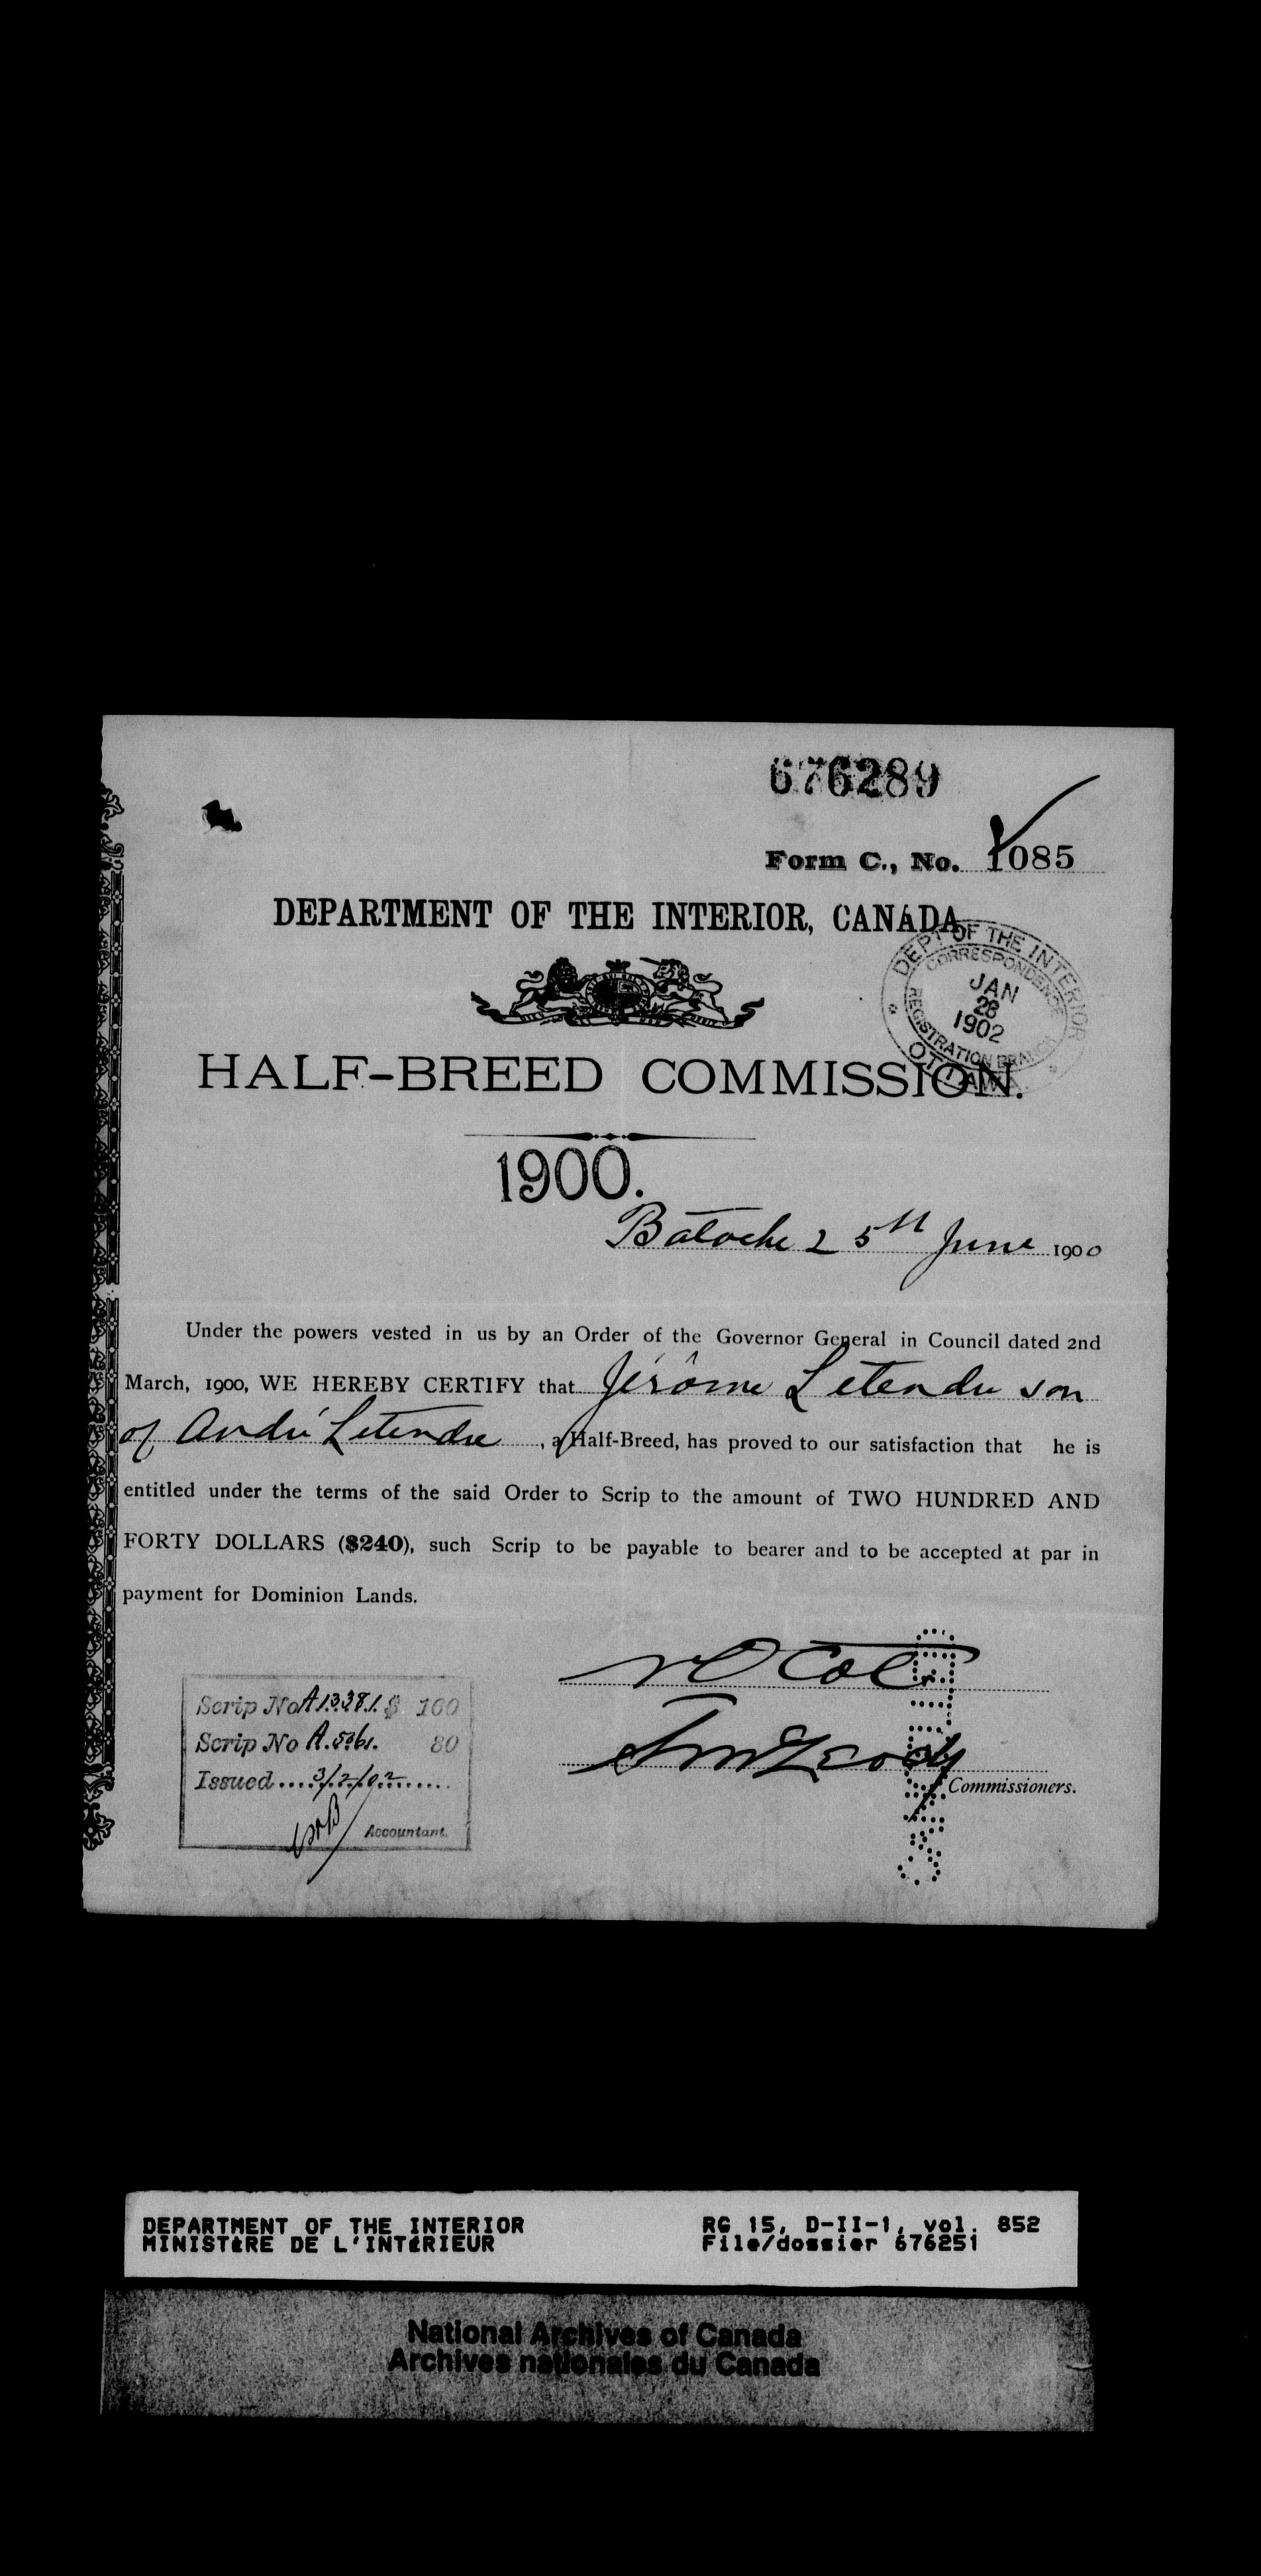 676289
Form C., No. 1085
DEPARTMENT OF THE INTERIOR, CANADA.
DEPT OF THE INTERIOR
CORRESPONDENCE
JAN
28
1902
REGISTRATION BRANCH
OTTAWA
HALF-BREED COMMISSION.
1900.
Batoche 25th June 1900
Under the powers vested in us by an Order of the Governor General in Council dated 2nd
March, 1900, WE HEREBY CERTIFY that Jérôme Letendre son
of André Letendre, a Half-Breed, has proved to our satisfaction that he is
entitled under the terms of the said Order to Scrip to the amount of TWO HUNDRED AND
FORTY DOLLARS ($240), such Scrip to be payable to bearer and to be accepted at par in
payment for Dominion Lands.
Scrip No A13381. $ 160
Scrip No A.5061. 80
Issued....3/2/02....
Accountant.
Commissioners.
DEPARTMENT OF THE INTERIOR
MINISTÈRE DE L'INTÉRIEUR
RG 15, D-II-1, vol. 852
File/dossier 676251
National Archives of Canada
Archives nationales du Canada